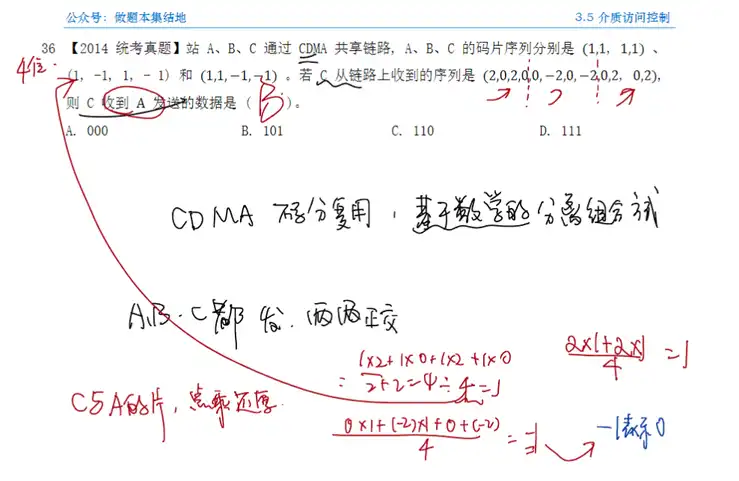 公众号：做题本集结地 3.5 介质访问控制
36 【2014 统考真题】站 A、B、C 通过 CDMA 共享链路，A、B、C 的码片序列分别是 (1,1, 1,1) 、
4位.
(1, -1, 1, - 1) 和 (1,1,-1,-1) 。若 C 从链路上收到的序列是 (2,0,2,0,0,-2,0,-2,0,2, 0,2),
则 C 收到 A 发送的数据是（ B ）。
A. 000 B. 101 C. 110 D. 111
CDMA 码分复用，基于数学的分离组合式
A.B.C都发.两两正交
1×2+1×0+1×2+1×0
= 2+2=4÷4=1
2×1+2×1
4
=1
C与A的片，点乘还原.
0×1+(-2)×1+0+(-2)
4
=-1
-1表示0